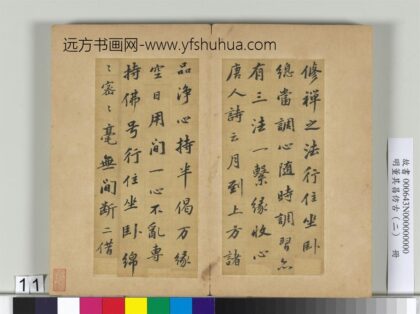 远方书画网-www.yfshuhua.com
修禅之法行住坐卧
總當調心随時調習亦
有三法一繫缘收心
唐人詩云月到上方諸
品浄心持半偈万缘
空日用间一心不亂專
持佛号行住坐卧绵
〻密〻毫無间断二借
故書000643N000000000
明董其昌仿古(二) 冊
11